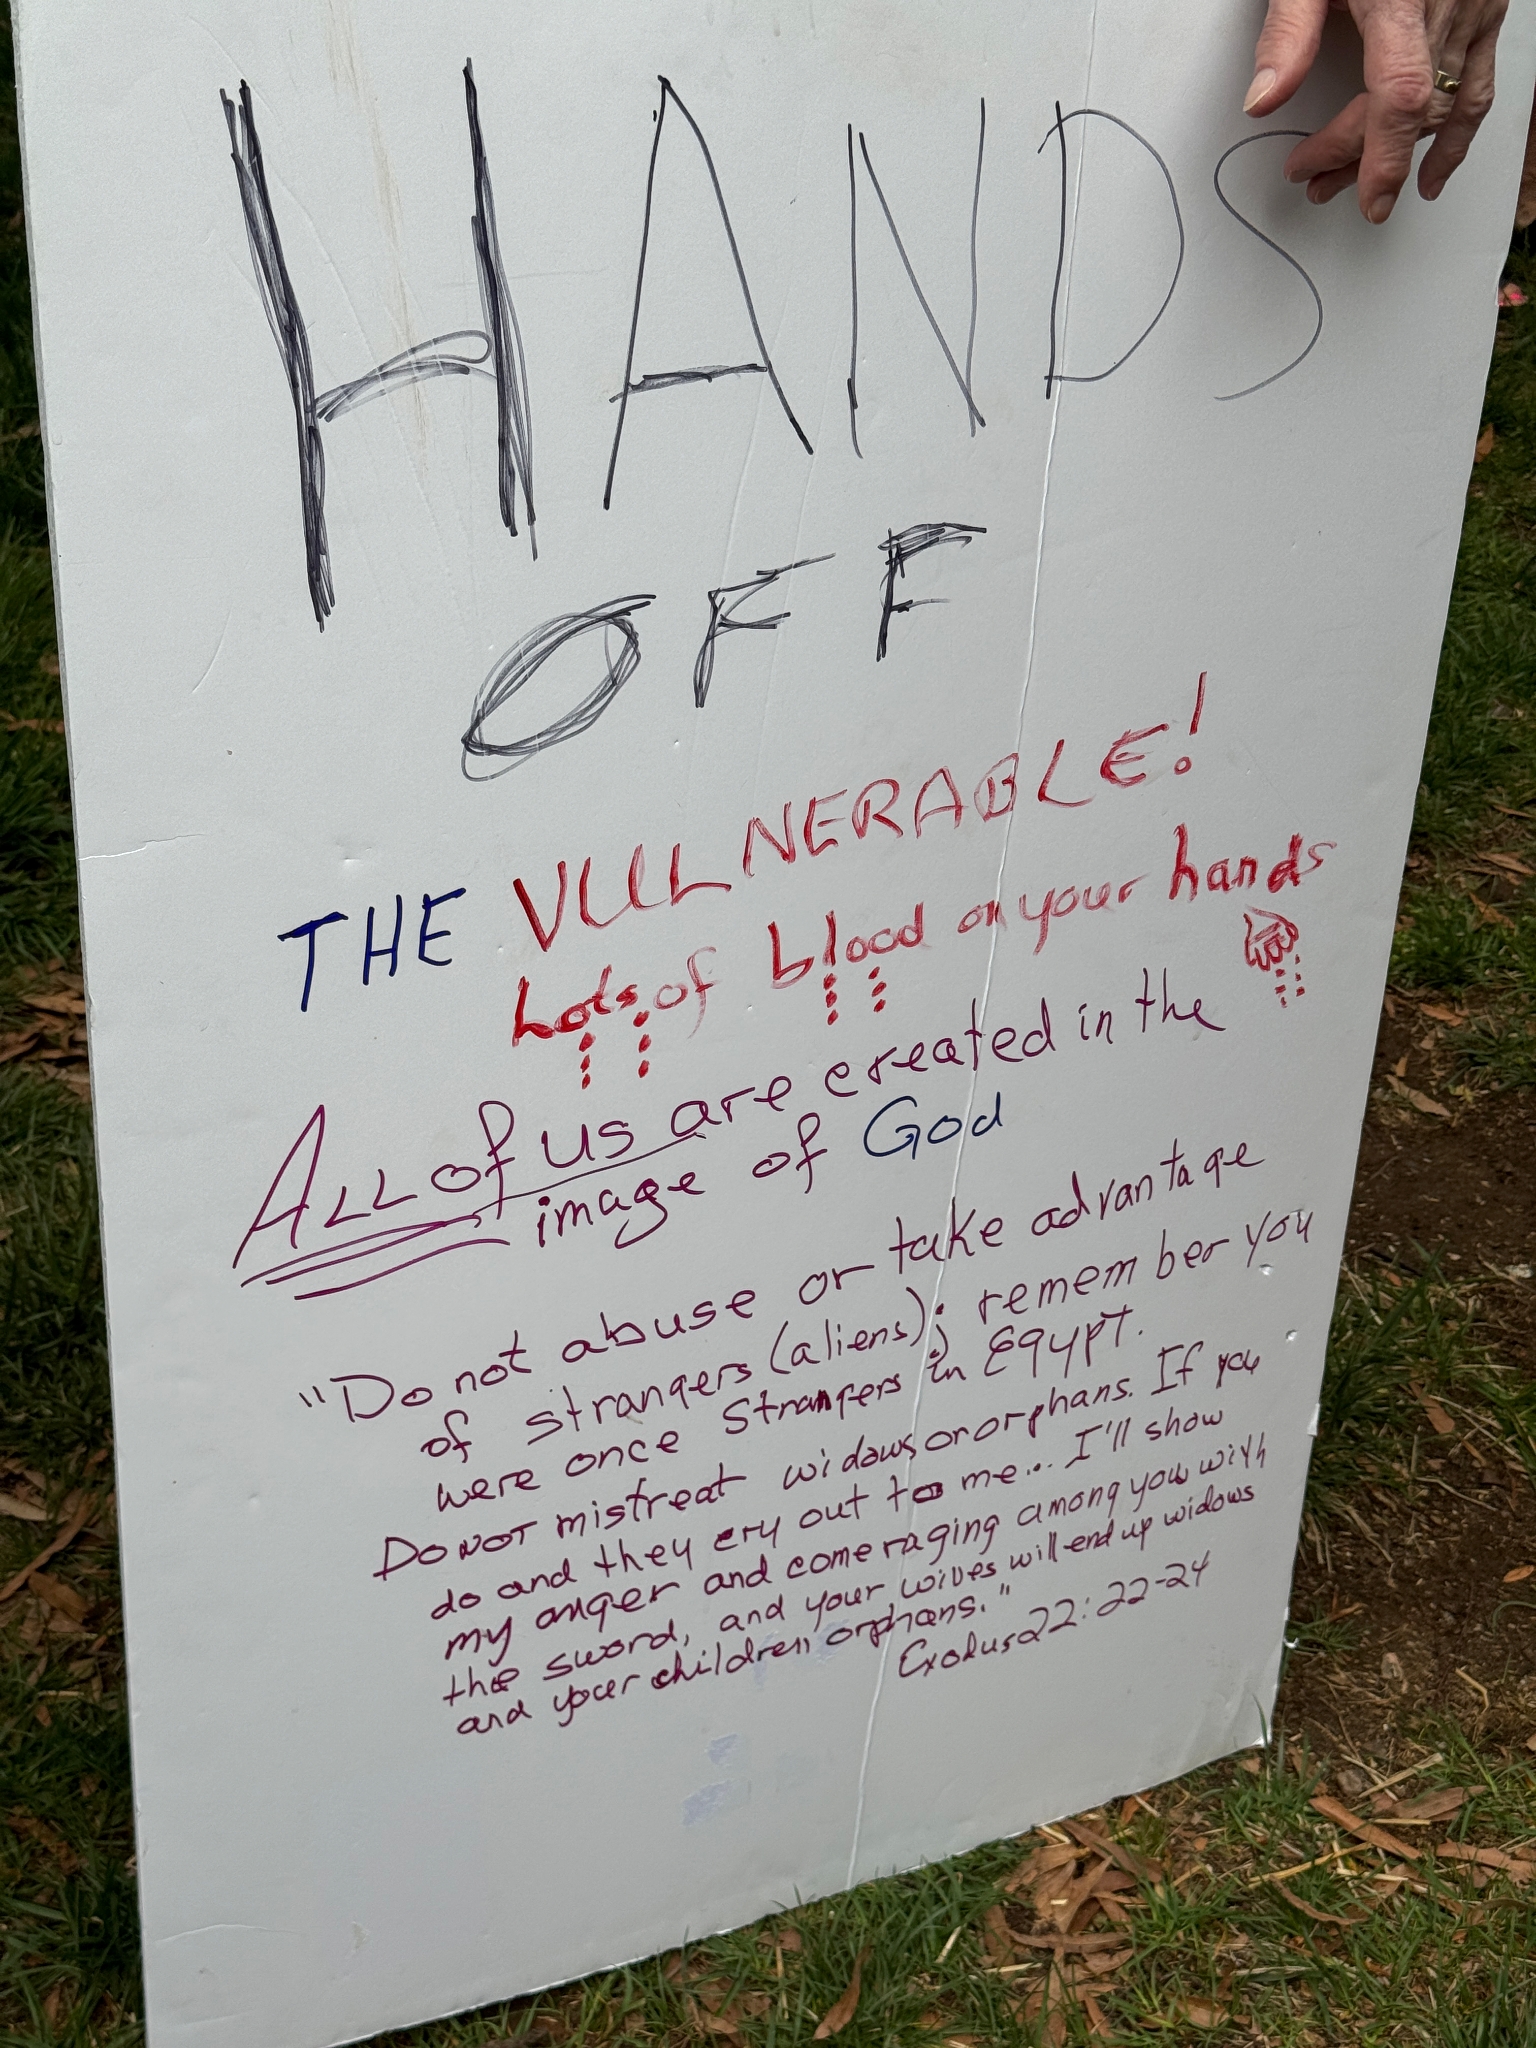 HANDS
OFF
THE VULNERABLE!
Lots of blood on your hands
ALL of us are created in the
image of God
"Do not abuse or take advantage
of strangers (aliens); remember you
were once strangers in Egypt.
Do NOT mistreat widows or orphans. If you
do and they cry out to me... I'll show
my anger and come raging among you with
the sword, and your wives will end up widows
and your children orphans."
Exodus 22:22-24